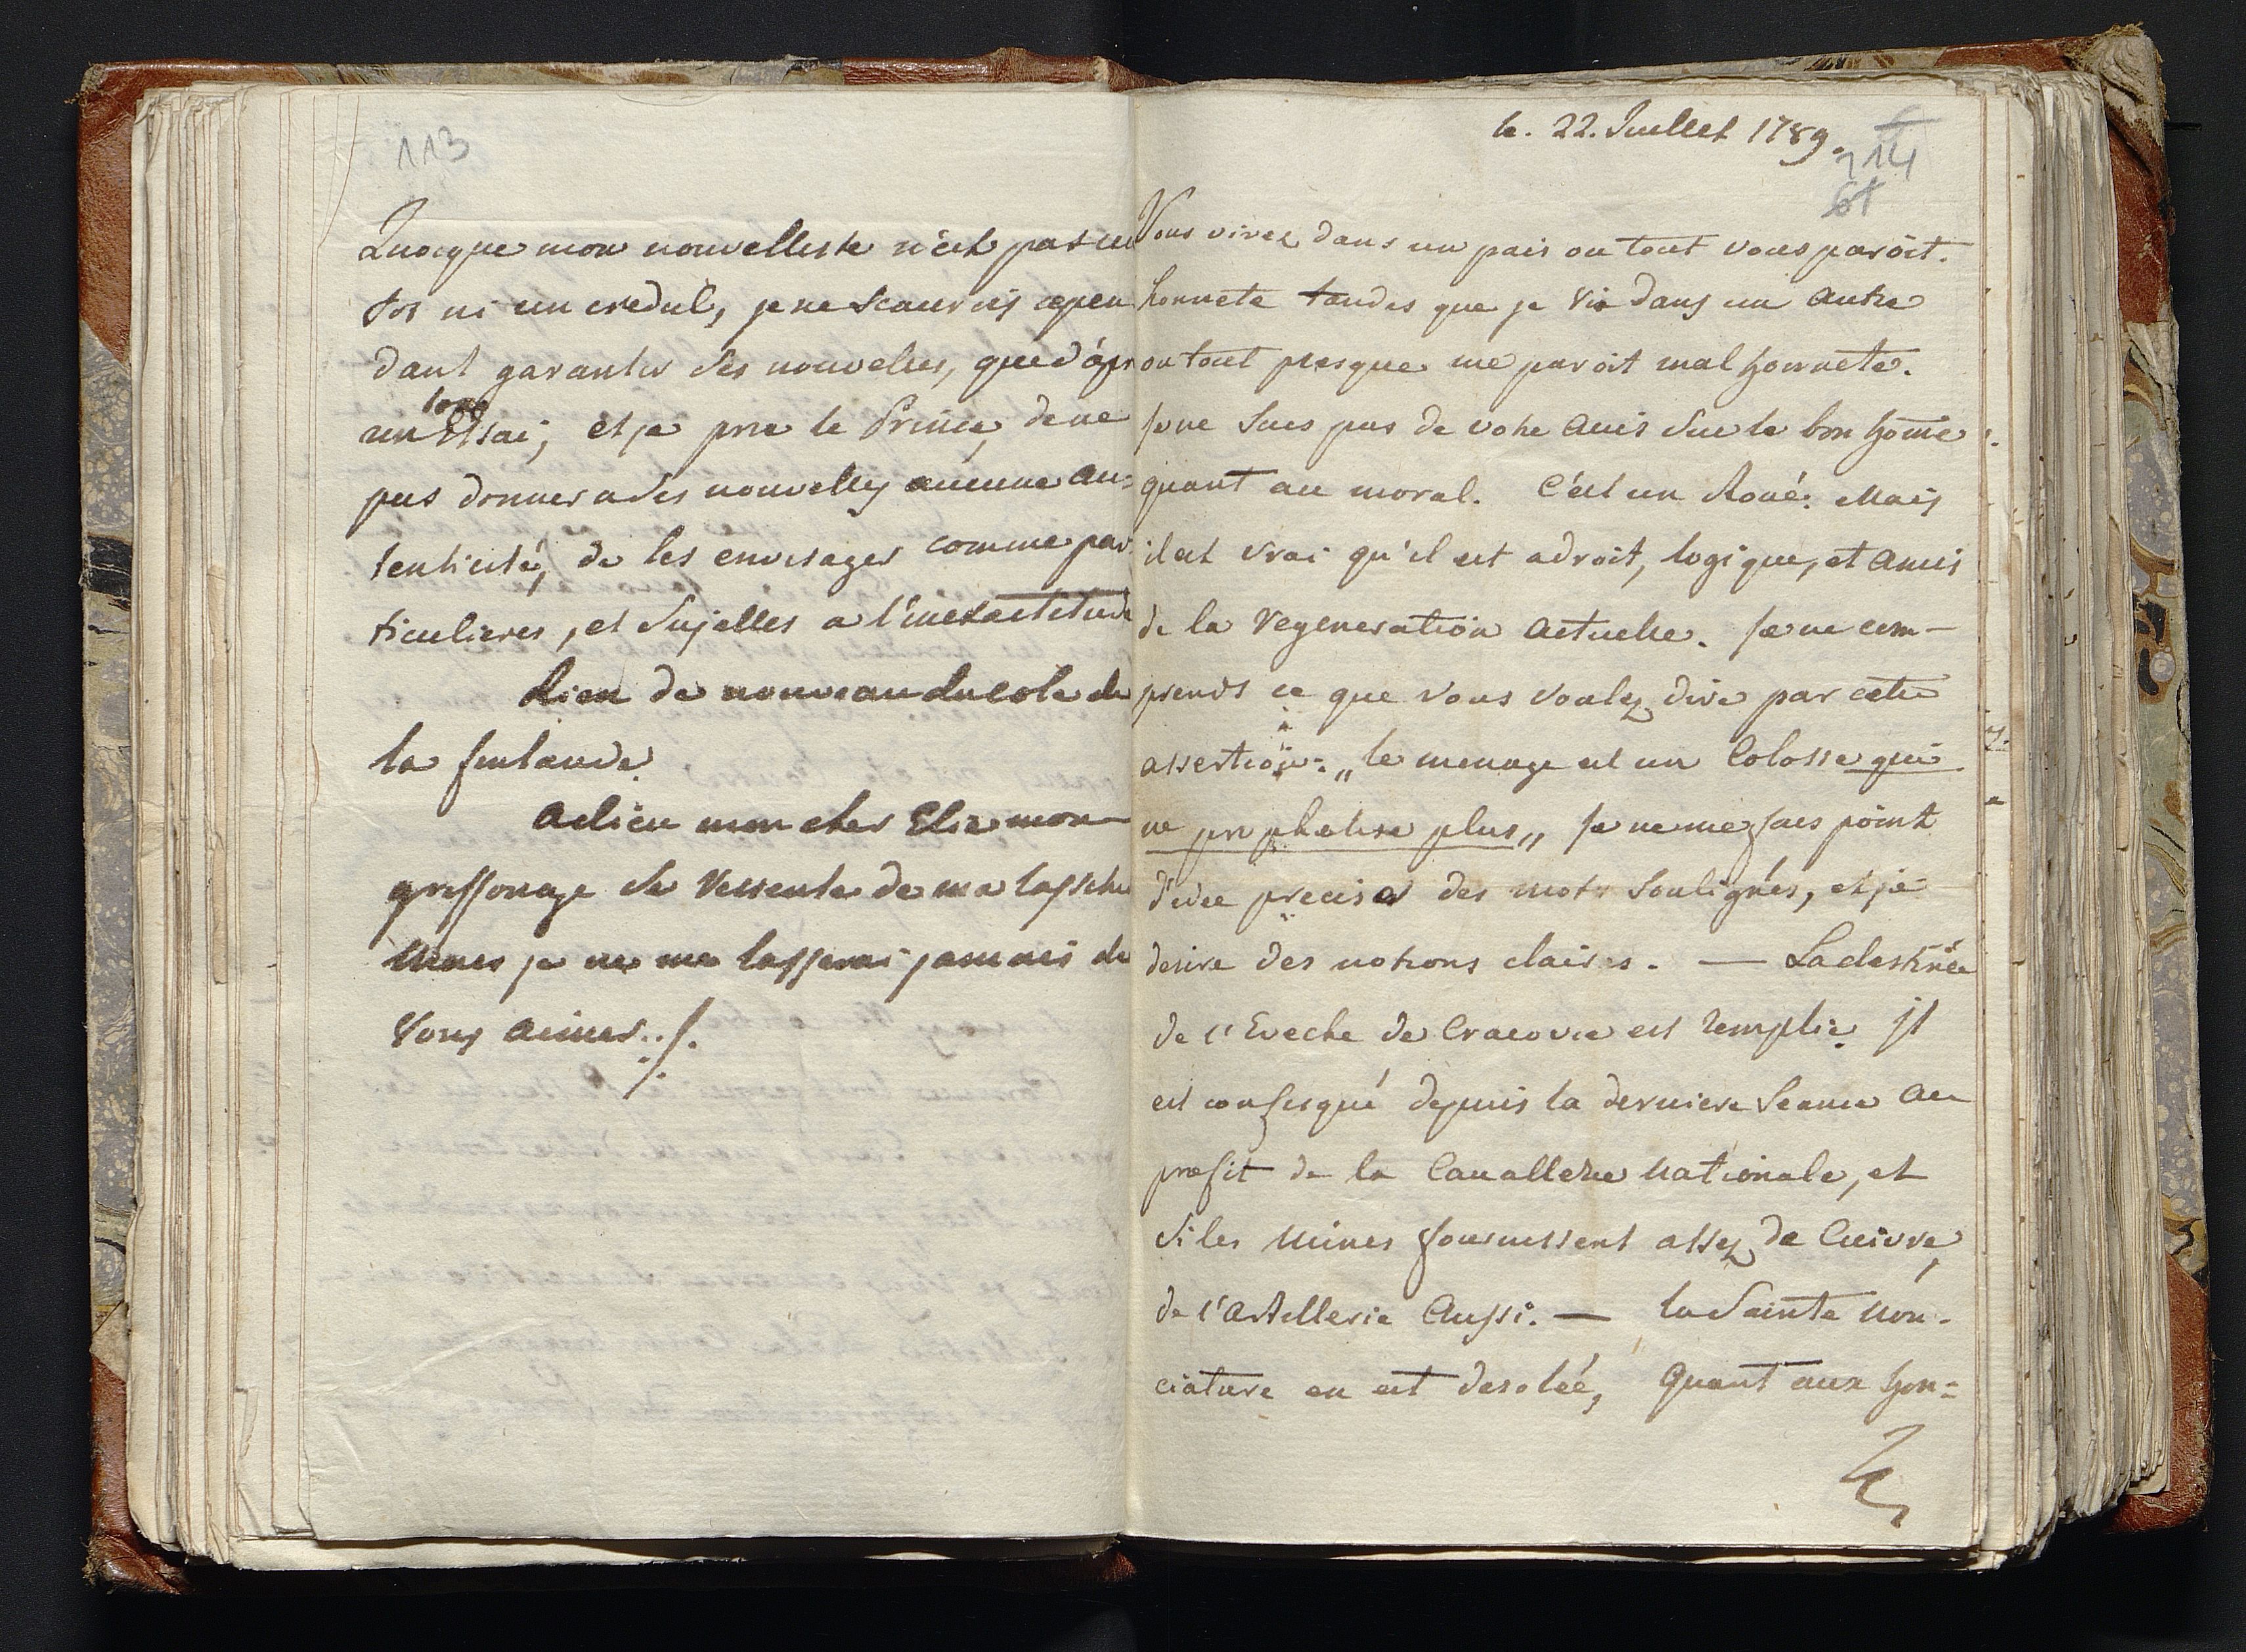 113
Quoique mon nouvelliste n'est pas un
sot ni un credul, je ne scaurois cepen
dant garantir ses nouvelles, que d'àpr
un long Essai; et je prie le Prince, de ne
pas donner a ses nouvelles aucune au=
tenticité, de les envisager comme par
ticulieres, et Sujettes a l'inexactitude
Rien de nouveau du coté de
la finlande.
Adieu mon cher Elie mon
griffonage se ressente de ma lassitu
Mais je ne me lasserai jamais de
Vous aimer../.
le. 22. Juillet 1789.
114
61
Vous vivez dans un pais ou tout vous paroit.
honnete tandis que je vis dans un autre
ou tout presque me paroit mal honnete.
Je ne suis pas de votre avis sur le bon home
quant au moral. C'est un Roué. Mais
il est vrai qu'il est adroit, logique, et amis
de la regeneration actuelle. Je ne com-
prends ce que vous voulez dire par cette
assertion: „le menage est un Colosse qui
ne prophetise plus„ Je ne me fais point
d'idée precise des mots soulignés, et je
desire des notions claires. — La destinée
de l'Eveche de Cracovie est remplie. Il
est confisqué depuis la derniere Seance au
profit de la Cavallerie Nationale, et
si les Mines fournissent assez de Cuivre,
de l'Artillerie Aussi. — la Sainte Non-
ciature en est desolée, Quant aux hon=